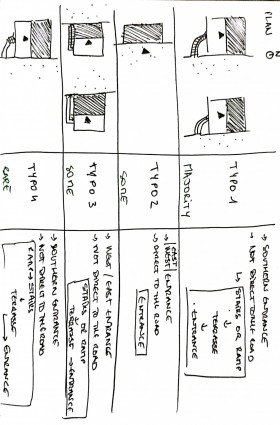 PLAN
N
TYPO 1
MAJORITY
→ SOUTHERN ENTRANCE
→ NOT DIRECT TO THE ROAD
↳ STAIRS OR RAMP
↓
TERRASSE
↓
ENTRANCE
TYPO 2
SOME
EAST
→ WEST ENTRANCE
→ DIRECT TO THE ROAD
ENTRANCE
TYPO 3
SOME
→ WEST / EAST ENTRANCE
→ NOT DIRECT TO THE ROAD
STAIRS OR RAMP
TERRASSE → ENTRANCE
TYPO 4
RARE
→ SOUTHERN ENTRANCE
→ NOT DIRECT TO THE ROAD
STAIRS
↓
TERRASSE
↓
ENTRANCE